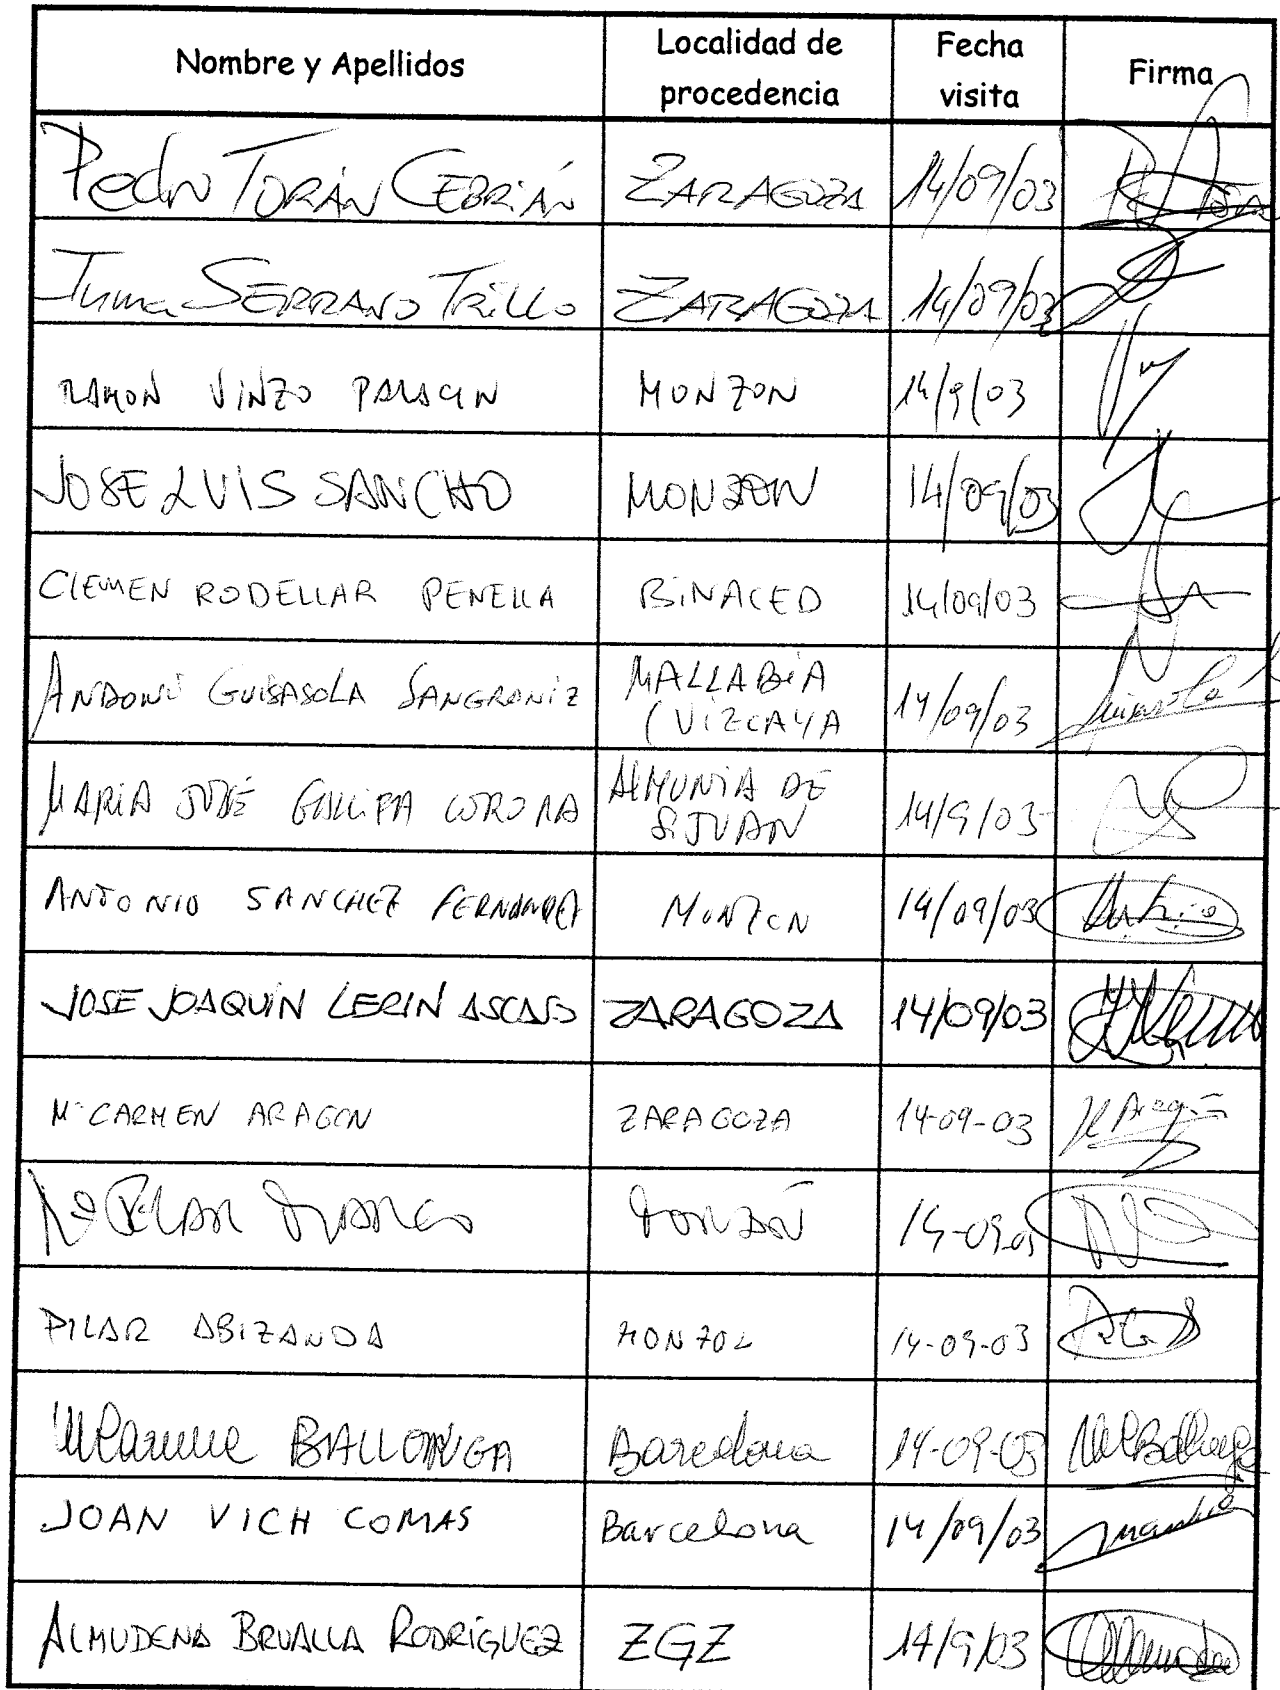 Nombre y Apellidos Localidad de procedencia Fecha visita Firma
Pedro TORÁN CEBRIÁN ZARAGOZA 14/09/03
SERRANO TRILLO ZARAGOZA 14/09/03
RAMON VINZO PALACIN MONZON 14/9/03
JOSE LUIS SANCHO MONZON 14/09/03
CLEMEN RODELLAR PENELLA BINACED 14/09/03
ANDONI GUISASOLA SANGRONIZ MALLABIA (VIZCAYA 14/09/03
MARIA JOSÉ CORONA ALMUNIA DE S. JUAN 14/9/03
ANTONIO SANCHEZ FERNANDEZ MONZON 14/09/03 Antonio
JOSE JOAQUÍN LERIN ASCASO ZARAGOZA 14/09/03
Mª CARMEN ARAGON ZARAGOZA 14-09-03
Mª PILAR MONZÓN 14-09-03
PILAR ABIZANDA MONZON 14-09-03
BALLONGA Barcelona 14-09-03
JOAN VICH COMAS Barcelona 14/09/03
ALMUDENA BRUALLA RODRÍGUEZ ZGZ 14/9/03